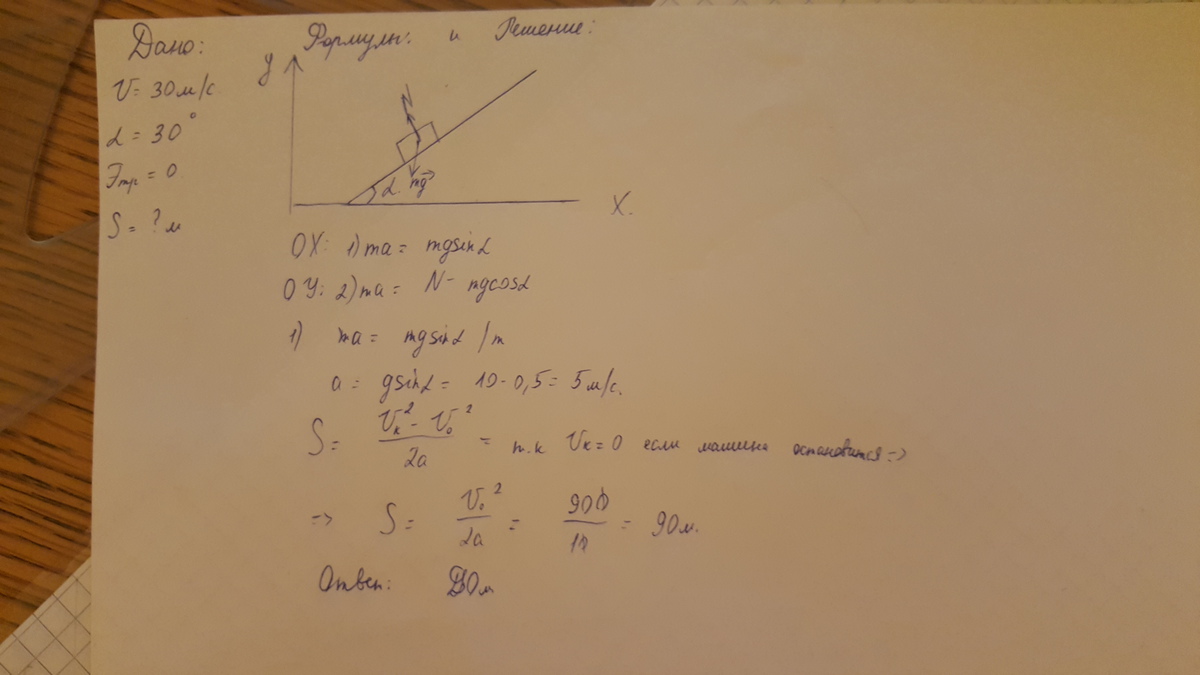 Дано:
V = 30 м/с
α = 30°
Fтр = 0
S = ? м
Формулы: и Решение:
y
N
α
mg
X.
OX: 1) ma = mgsinα
OY: 2) ma = N - mgcosα
1) ma = mgsinα /m
a = gsinα = 10 · 0,5 = 5 м/с.
S = (Vк² - V₀²)/2a = т.к Vк = 0 если машина остановится =>
=> S = V₀²/2a = 900/10 = 90 м.
Ответ: 90м